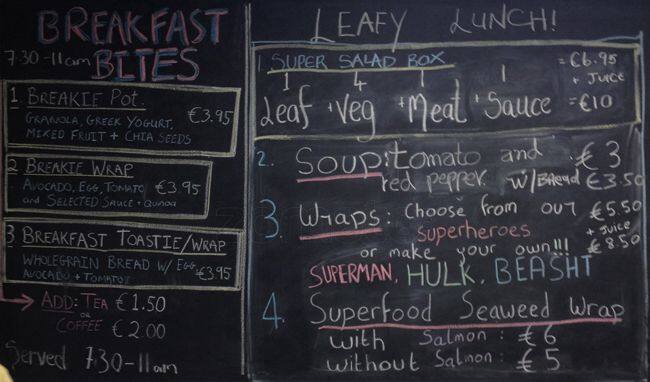 BREAKFAST
7.30-11am BITES
1 BREAKIE POT.
GRANOLA, GREEK YOGURT, €3.95
MIXED FRUIT + CHIA SEEDS
2 BREAKIE WRAP
AVOCADO, EGG, TOMATO €3.95
and SELECTED SAUCE + QUINOA
3 BREAKFAST TOASTIE/WRAP
WHOLEGRAIN BREAD W/ EGG
AVOCADO + TOMATO €3.95
ADD: TEA €1.50
OR
COFFEE €2.00
Served 7.30-11am
LEAFY LUNCH!
1. SUPER SALAD BOX = €6.95
+ JUICE
1 4 1 1
Leaf + Veg + Meat + Sauce = €10
2. SOUP: tomato and €3
red pepper w/ BREAD €3.50
3. Wraps: Choose from our €5.50
superheroes + JUICE
or make your own!!! €8.50
SUPERMAN, HULK, BEASHT
4. Superfood Seaweed Wrap
with Salmon: €6
without Salmon: €5